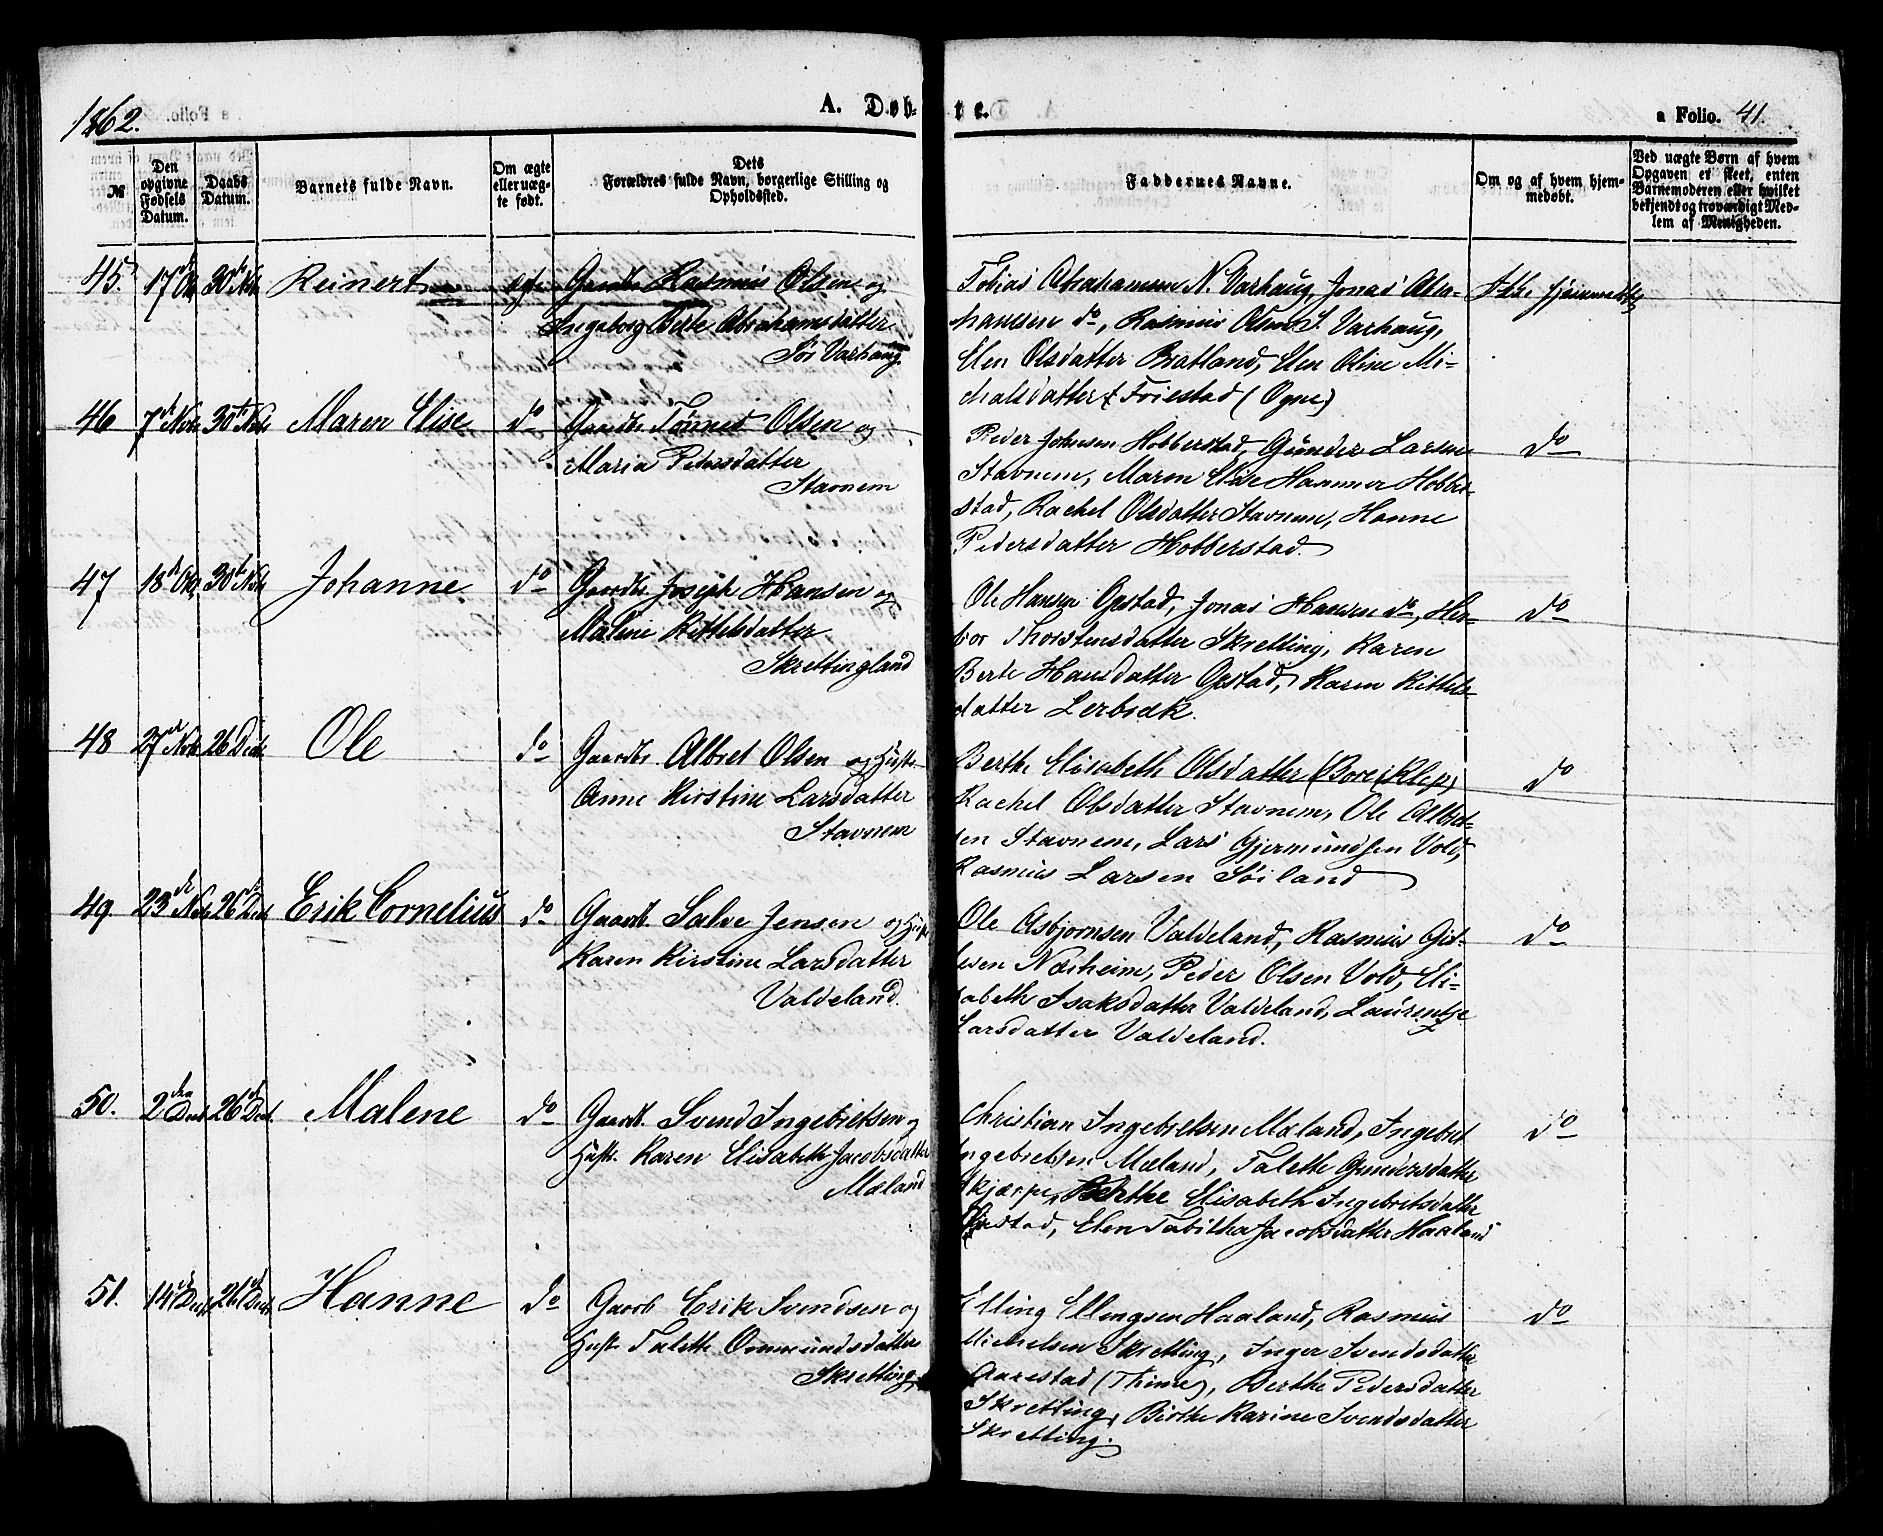 1862.
A. Døb-
te.
a Folio. 41.
№
Den opgivne Fødsels Datum.
Daabs Datum.
Barnets fulde Navn.
Om ægte eller uægte født.
Dets Forældres fulde Navn, borgerlige Stilling og Opholdssted.
Faddernes Navne.
Om og af hvem hjemmedøbt.
Ved uægte Børn af hvem Opgaven er skeet, enten Barnemoderen eller hvilket bekjendt og troværdigt Medlem af Menigheden.
45. 17de Okt. 30te Nov. Reinert ægte Gaardbr. Rasmus Olsen og
Ingeborg Berte Abrahamsdatter
Søi Varhaug
Tobias Abrahamsen N. Varhaug, Jonas Abra-
hamsen do, Rasmus Olsen S. Varhaug,
Elen Olsdatter Bratland, Elen Oline Mi-
chalsdatter Friestad (Ogne)
Ikke hjemmedøbt
46 7de Nov. 30te Nov. Maren Elise do Gaardbr. Tønnes Olsen og
Maria Pedersdatter
Stavnem
Peder Johnsen Hobberstad, Gunder Larsen
Stavnem, Maren Elise Hammer Hobber-
stad, Rachel Olsdatter Stavnem, Hanne
Pedersdatter Hobberstad
do
47 18de Okt. 30te Nov. Johanne do Gaardbr. Joseph Hansen og
Malene Kittelsdatter
Skrettingland
Ole Hansen Opstad, Jonas Hansen do, Her-
bor Thorstensdatter Skretting, Karen
Berte Hansdatter Opstad, Karen Kittels-
datter Lerbræk.
do
48 27de Nov. 26 Decb. Ole do Gaardbr. Albret Olsen og Hustr.
Anne Kirstine Larsdatter
Stavnem
Berthe Elisabeth Olsdatter (Bore i Klep)
Rachel Olsdatter Stavnem, Ole Albret-
sen Stavnem, Lars Gjermundsen Vold,
Rasmus Larsen Søiland
do
49. 23de Nov. 26de Decb. Erik Cornelius do Gaardb. Salve Jensen og Hustr.
Karen Kirstine Larsdatter
Valdeland.
Ole Asbjørnsen Valdeland, Rasmus Git-
lesen Nærheim, Peder Olsen Vold, Eli-
sabeth Isaksdatter Valdeland, Laurentse
Larsdatter Valdeland.
do
50. 2den Decb. 26de Decb. Malene do Gaardb. Svend Ingebretsen og
Hustr. Karen Elisabeth Jacobsdatter
Mæland
Christian Ingebretsen Mæland, Ingebret
Ingebretsen Mæland, Talethe Gundersdatter
Skjærpe, Berthe Elisabeth Ingebretsdatter
Elen Tabitha Jacobsdatter Haaland
do
51. 14de Decb. 26de Decb. Hanne do Gaardb. Erik Svendsen og
Hustr. Talette Ommundsdatter
Skretting
Elling Ellingsen Haaland, Rasmus
Michelsen Skretting, Inger Svendsdatter
Aarestad (Thime), Berthe Pedersdatter
Skretting, Birthe Karine Svendsdatter
Skretting.
do